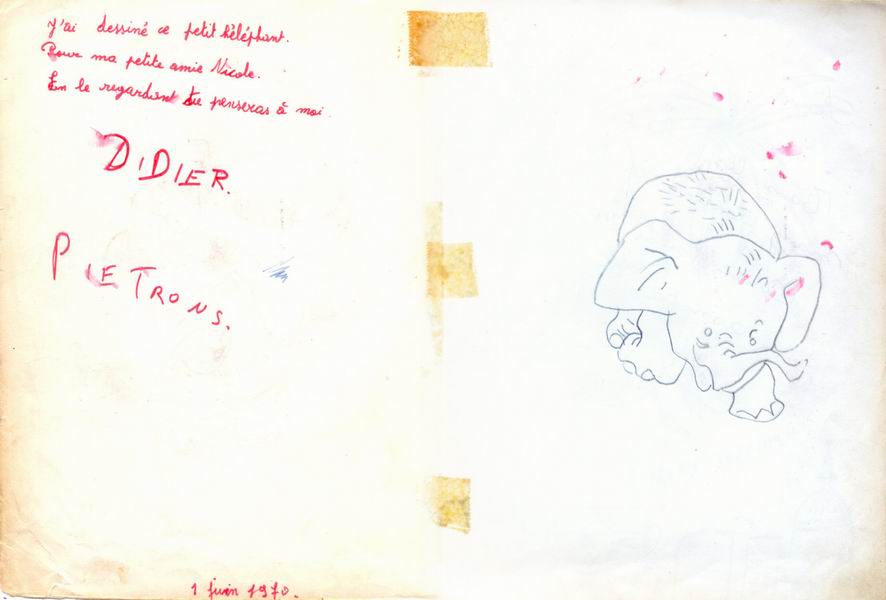 J'ai dessiné ce petit héléphant.
Pour ma petite amie Nicole.
En le regardant tu penseras à moi.
DIDIER.
PIETRONS.
1 juin 1970.